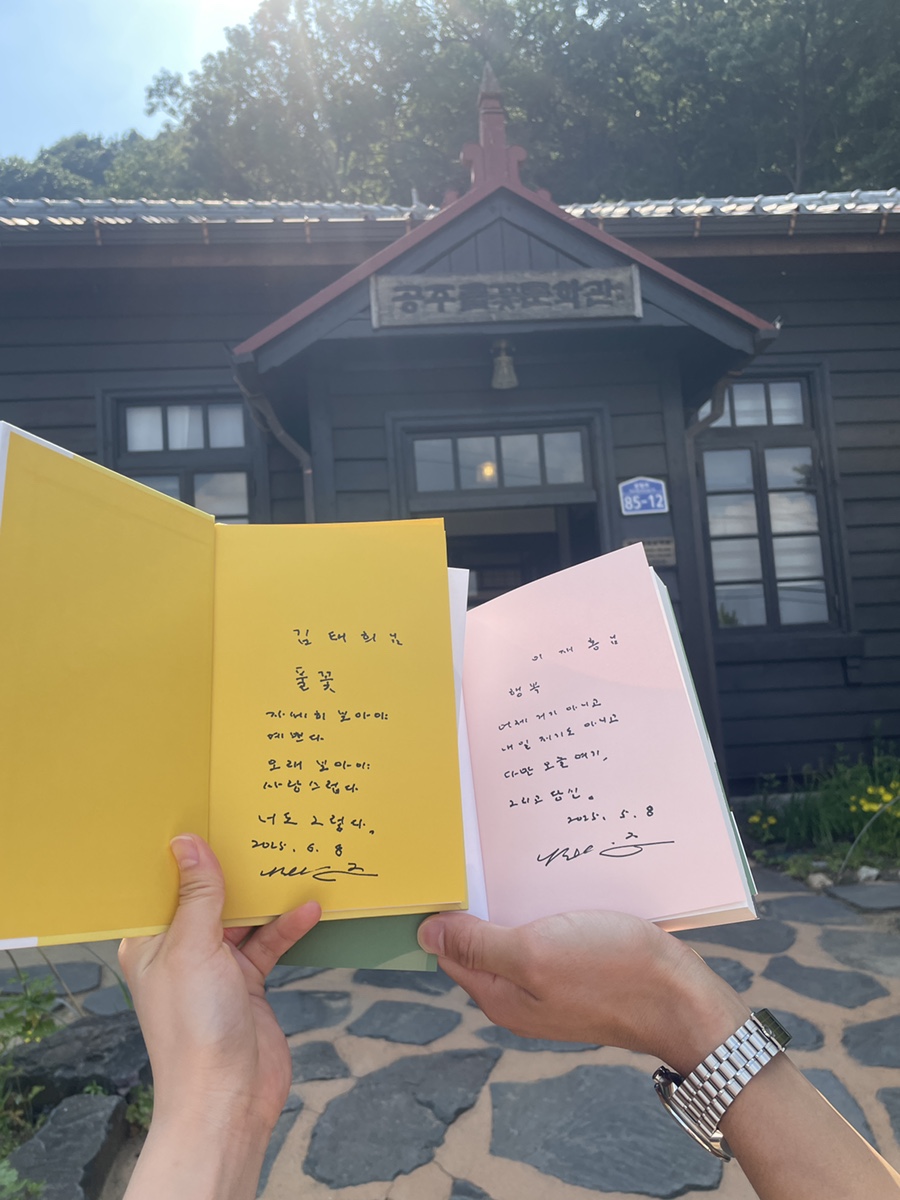 공주풀꽃문학관
85-12
김태희님
풀꽃
자세히 보아야
예쁘다
오래 보아야
사랑스럽다
너도 그렇다.
2025. 6. 8
이재홍님
행복
어제 거기 아니고
내일 저기도 아니고
다만 오늘 여기,
그리고 당신.
2025. 5. 8